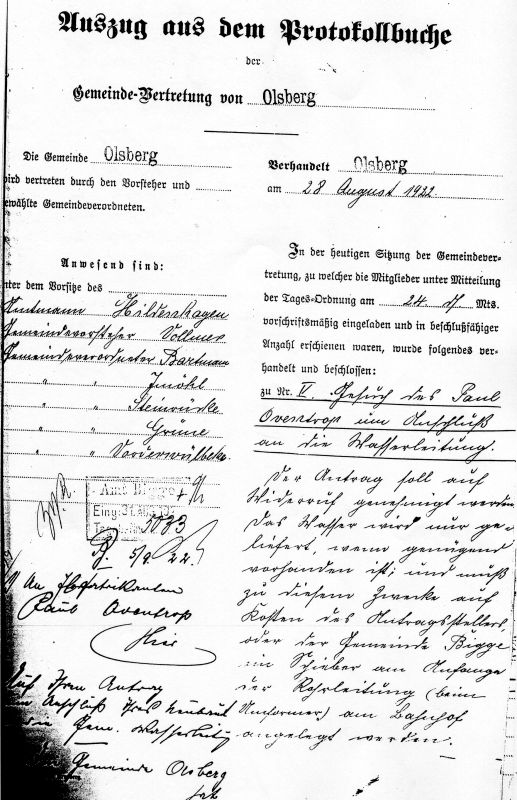 Auszug aus dem Protokollbuche
der
Gemeinde-Vertretung von Olsberg
Die Gemeinde Olsberg
wird vertreten durch den Vorsteher und
gewählte Gemeindeverordneten.
Anwesend sind:
unter dem Vorsitze des
Amtmann Hildenhagen
Gemeindevorsteher Vollmer
Gemeindeverordneter Bartmann
" " Imöhl
" " Steinrücke
" " Grüne
" " Vorderwülbeke
Amt Bigge
Eing: 31. AUG. 19
Tageb.-Nr. 5033
5/9. 22.
An Fabrikanten
Paul Oventrop
Hier
Auf Ihren Antrag
Anschluß Ihres Neubaus
an die Gem. Wasserleitg
Gemeinde Olsberg
hat
Verhandelt Olsberg
am 28 August 1922.
In der heutigen Sitzung der Gemeindever-
tretung, zu welcher die Mitglieder unter Mitteilung
der Tages-Ordnung am 24. d. Mts.
vorschriftsmäßig eingeladen und in beschlußfähiger
Anzahl erschienen waren, wurde folgendes ver-
handelt und beschlossen:
zu Nr. V. Gesuch des Paul
Oventrop um Anschluß
an die Wasserleitung.
Der Antrag soll auf
Widerruf genehmigt werden.
Das Wasser wird nur ge-
liefert, wenn genügend
vorhanden ist; und muß
zu diesem Zwecke auf
Kosten des Antragsstellers
oder der Gemeinde Bigge
ein Schieber am Anfange
der Rohrleitung (beim
Umformer) am Bahnhof
angelegt werden.